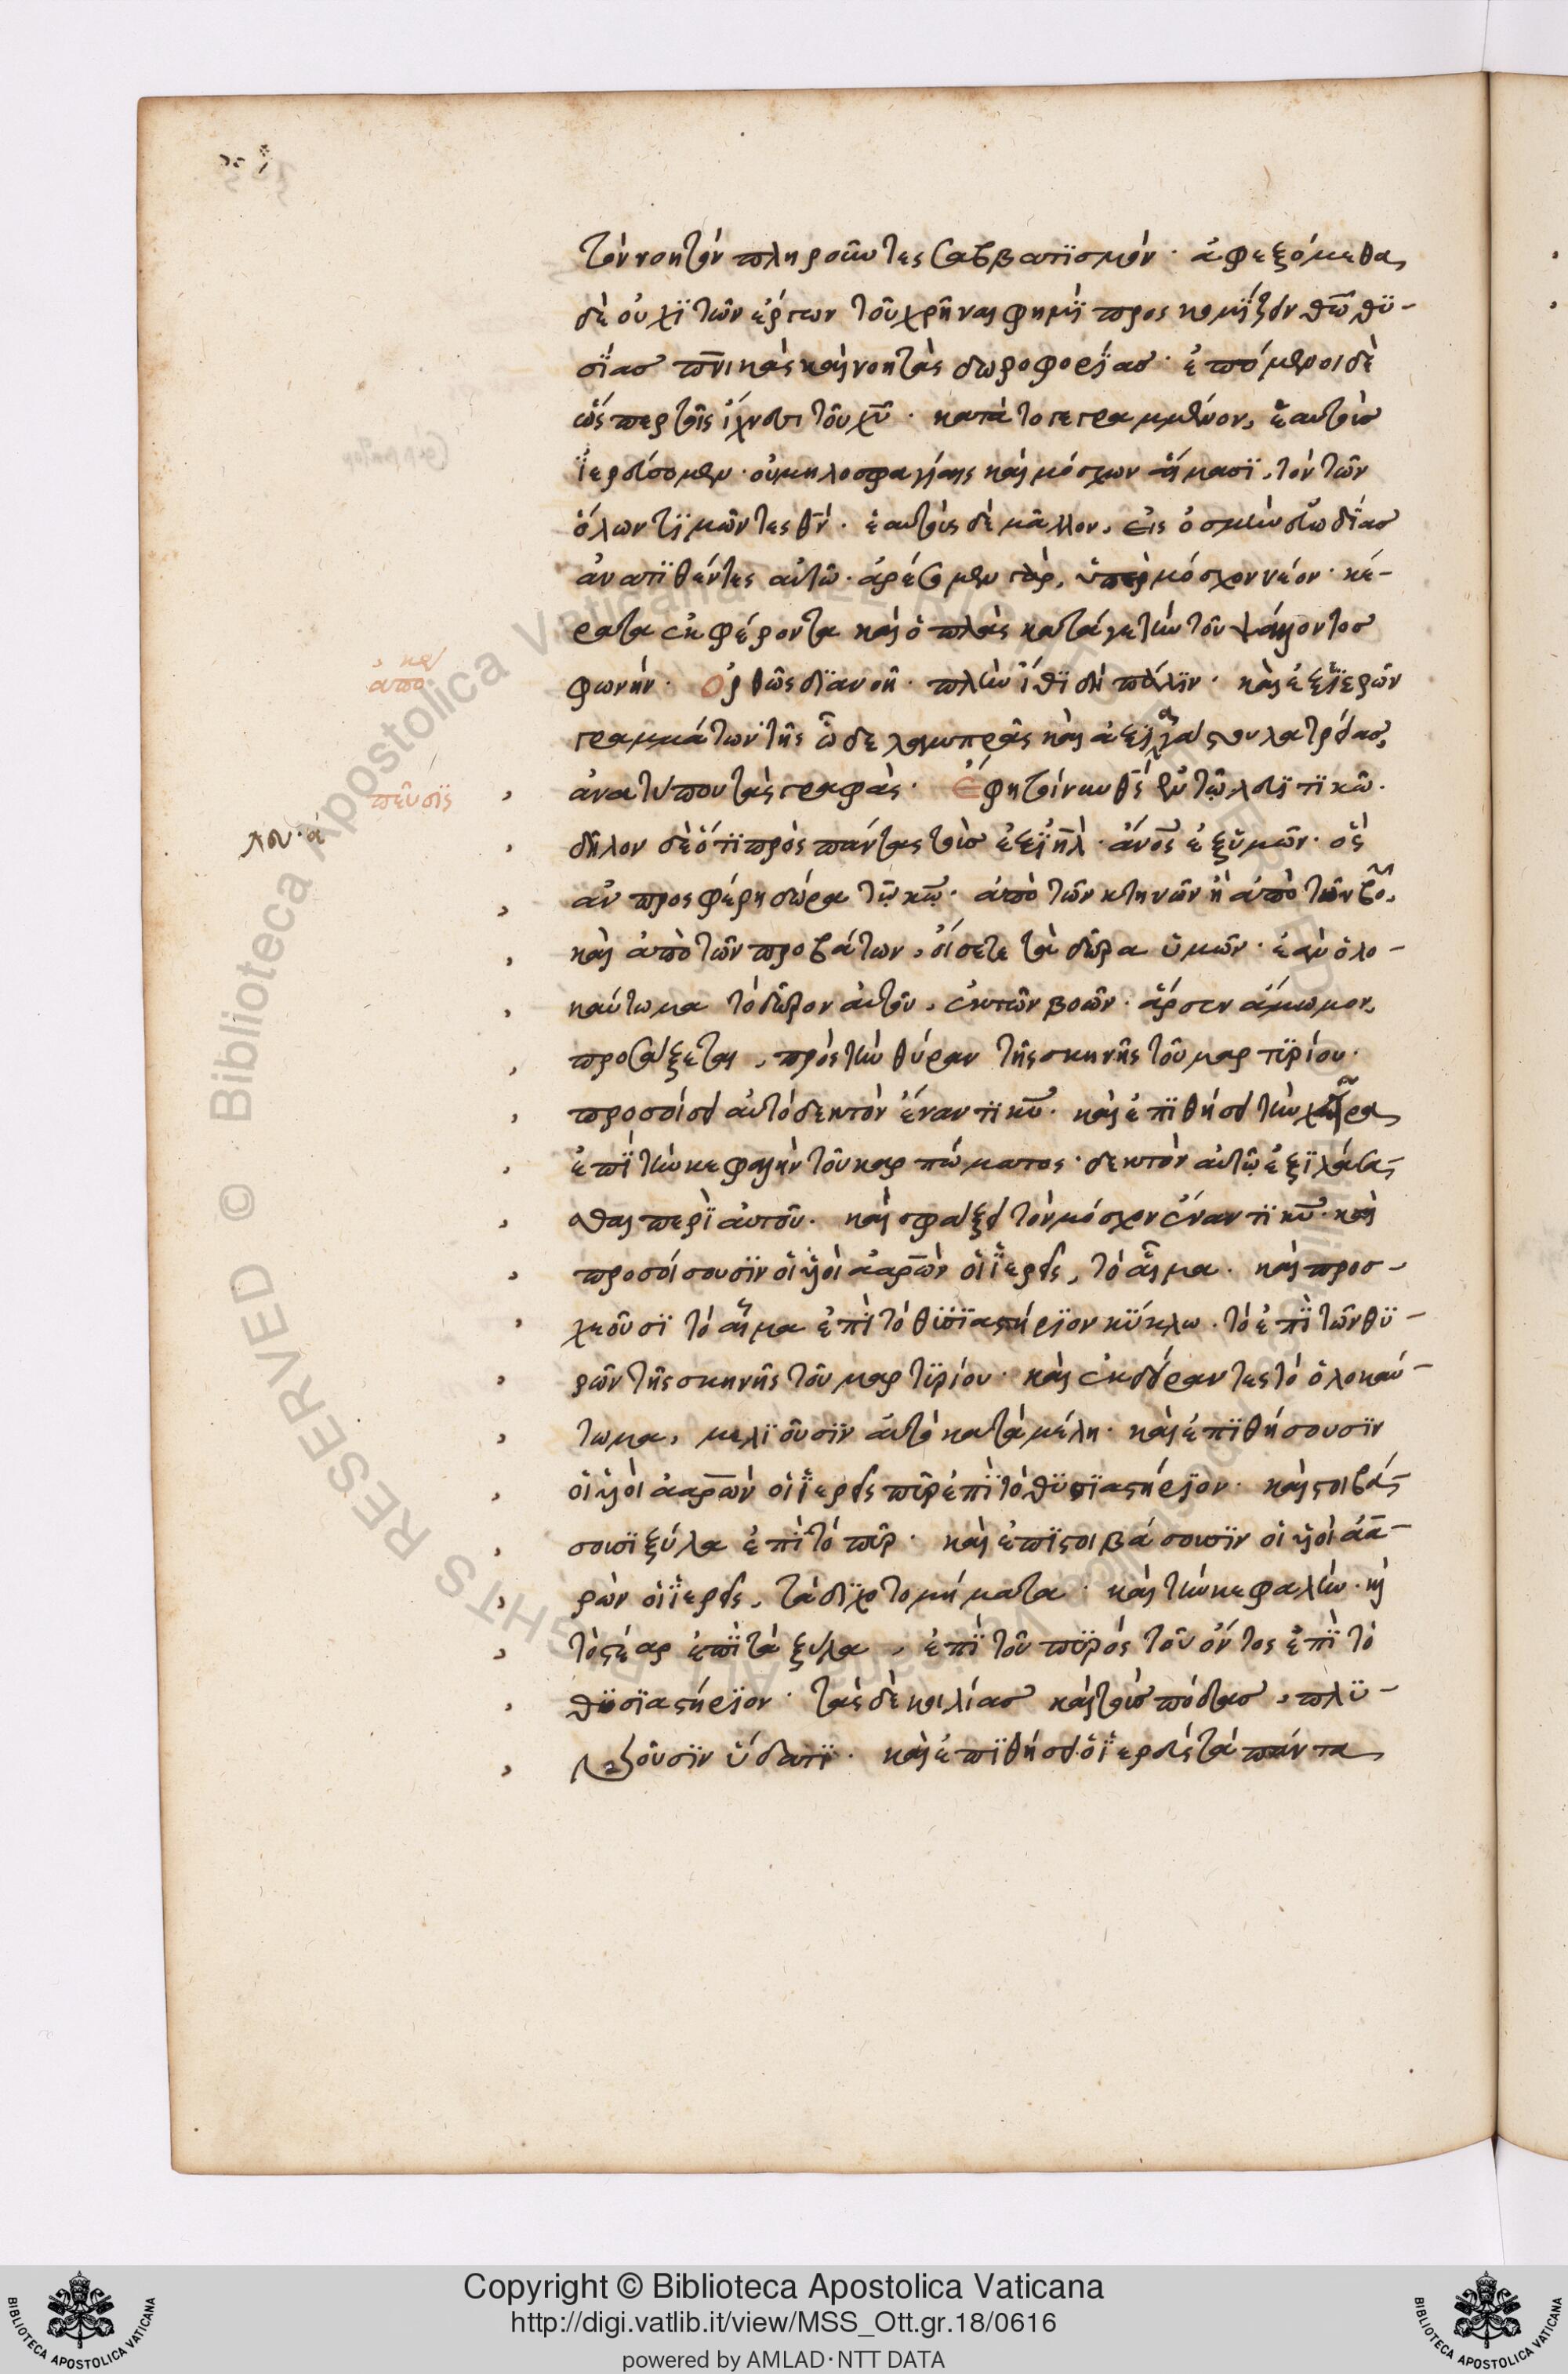 τὸν νοητὸν πληροῦντες σαββατϊσμόν · ἀφεξόμεθα
δὲ οὐχῒ τῶν ἔργων τοῦ χρῆναι φημῒ προσκομΐζειν θῶ θϋ-
σΐασ πν̅ικὰς καὶ νοητὰς δωροφορΐασ · ἑπόμενοι δὲ
ὥσπερ τοῖς ἴχνεσι τοῦ χυ̅ · κατὰ το γεγραμμένον, ἑαυτοὺσ
ἱερεύσομεν · οὐ μηλοσφαγίαις καὶ μόσχων αἵμασϊ, τὸν τῶν
ὅλων τϊμῶντες θν̅ · ἑαυτοὺς δὲ μᾶλλον, εἰς ὀσμὴν εὐωδΐασ
ἀνατϊθέντες αὐτῶ · ἀρέσει μὲν γὰρ, ὑπὲρ μόσχον νέον · κέ-
ρατα ἐκφέροντα καὶ ὁπλὰς κατά γε τὴν τοῦ ψάλλοντοσ
φωνήν · Ὀρθῶς δϊανοῆ · πλὴν ἴθϊ δὴ πάλϊν · καὶ ἐξ ἱερῶν
γραμμάτων τῆς ὧδε λαμπρᾶς καὶ ἀξϊαγάστου λατρείασ,
ἀνατύπου τὰς γραφάς · Ἔφη τοίνυν θς̅ ἐν τῶ λευϊτϊκῶ ·
δῆλον δὲ ὅτϊ πρὸς πάντας τοὺσ ἐξ ϊη̅λ · ἄνο̅ς ἐξ ὑμῶν · ὃς
ἂν προσφέρη δῶρα τῶ κω̅ · ἀπὸ τῶν κτηνῶν ἢ ἀπὸ τῶν βοῶ,
καὶ ἀπὸ τῶν προβάτων, οἴσετε τὰ δῶρα ὑμῶν · ἐὰν ὁλο-
καύτωμα τὸ δῶρον αὐτοῦ, ἐκ τῶν βοῶν · ἄρσεν ἄμωμον,
προσάξεται, πρὸς τὴν θύραν τῆς σκηνῆς τοῦ μαρτϋρίου ·
προσοίσει αὐτὸ δεκτὸν ἔναντϊ κυ̅ · καὶ ἐπϊθήσει τὴν χεῖρα
ἐπῒ τὴν κεφαλὴν τοῦ καρπώματος · δεκτὸν αὐτῶ ἐξϊλάσα-
σθαι περῒ αὐτοῦ · καὶ σφάξει τὸν μόσχον ἔναντϊ κυ̅ · καὶ
προσοίσουσϊν οἱ υἱοὶ ἀαρὼν οἱ ἱερεῖς, τὸ αἷμα · καὶ προσ-
χεοῦσϊ τὸ αἷμα ἐπῒ τὸ θϋσϊαστήρϊον κΰκλω · τὸ ἐπῒ τῶν θϋ-
ρῶν τῆς σκηνῆς τοῦ μαρτϋρίου · καὶ ἐκδείραντες τὸ ὁλοκαύ-
τωμα, μελϊοῦσϊν αὐτὸ κατὰ μέλη · καὶ ἐπϊθήσουσϊν
οἱ υἱοὶ ἀαρὼν οἱ ἱερεῖς πῦρ ἐπῒ τὸ θϋσϊαστήρϊον · καὶ στοιβά-
σουσϊ ξύλα ἐπὶ τὸ πῦρ · καὶ ἐπϊστοιβάσουσϊν οἱ υἱοὶ ἀα-
ρὼν οἱ ἱερεῖς, τὰ δϊχοτομήματα · καὶ τὴν κεφαλὴν · καὶ
τὸ στέαρ ἐπῒ τὰ ξύλα, ἐπῒ τοῦ πϋρὸς τοῦ ὄντος ἐπῒ τὸ
θϋσϊαστήρϊον · τὰς δὲ κοιλίασ καὶ τοὺσ πόδασ, πλϋ-
νοῦσϊν ὕδατϊ · καὶ ἐπϊθήσει ὁ ἱερεὺς τὰ πάντα
πεῦσϊς
λευ · α
Copyright © Biblioteca Apostolica Vaticana
http://digi.vatlib.it/view/MSS_Ott.gr.18/0616
powered by AMLAD·NTT DATA